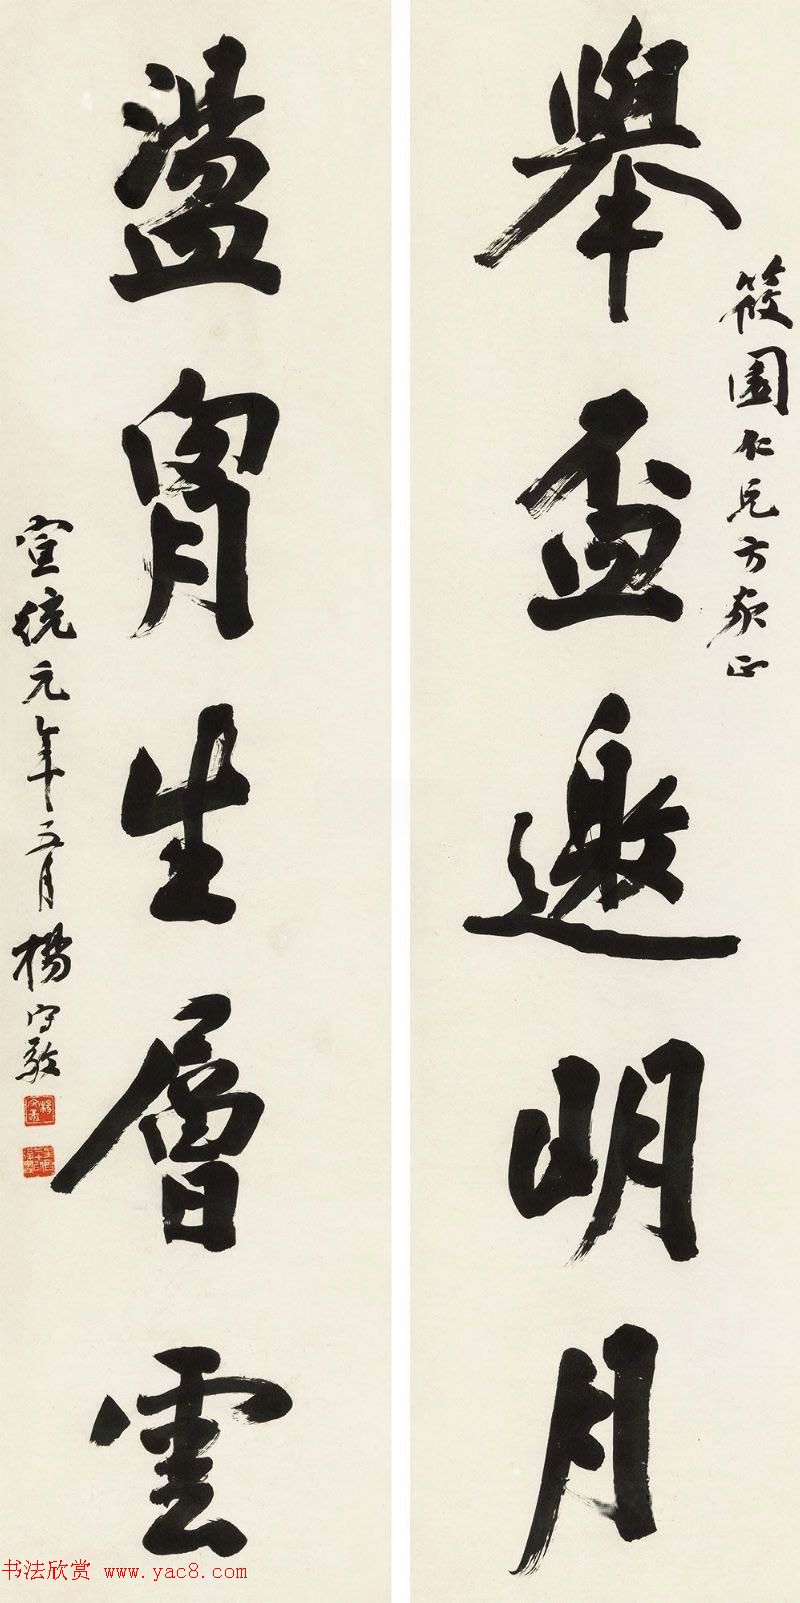 筱園仁兄方家正
舉盃邀明月
盪胷生層雲
宣統元年十二月楊守敬
书法欣赏 www.yac8.com